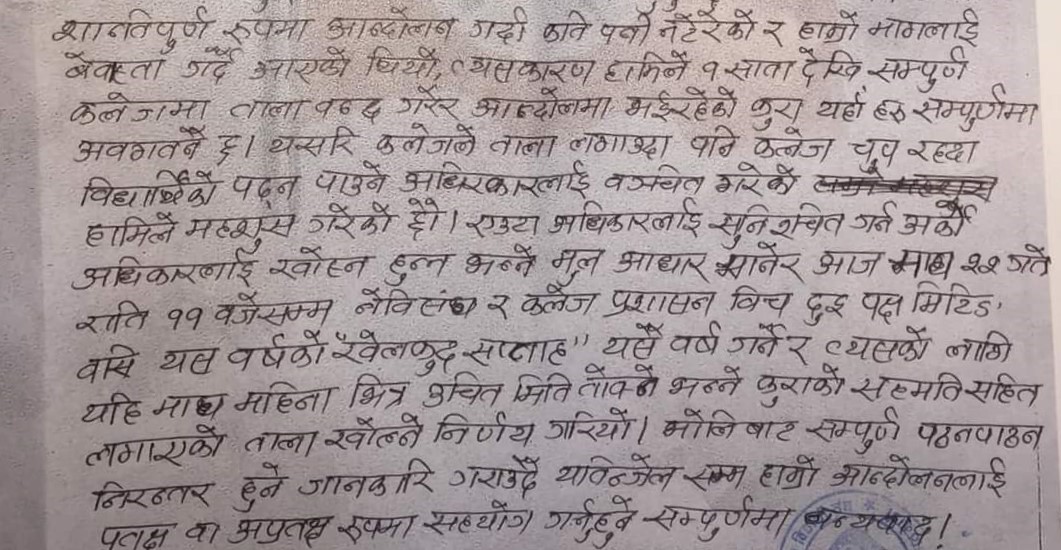 शान्तिपुर्ण रुपमा आन्दोलन गर्दा कति पनी नटेरेको र हाम्रो मागलाई
बेवास्ता गर्दै आएको थियो, त्यसकारण हामिले १ साता देखि सम्पुर्ण
कलेजमा ताला बन्द गरेर आन्दोलनमा भईरहेको कुरा यहाँ हरु सम्पुर्णमा
अवगतनै छ। यसरि कलेजले ताला लगाउदा पनि कलेज चुप रहदा
विद्यार्थिको पढ्न पाउने अधिरकारलाई वञ्चित गरेको
हामिले महशुस गरेको छौ। एउटा अधिकारलाई सुनिश्चित गर्न अर्को
अधिकारलाई खोस्न हुन्न भन्ने मूल आधार मानेर आज माघ २२ गते
राति ११ वजेसम्म नेविसंघ र कलेज प्रशासन विच दुइ पक्ष मिटिङ
वसि यस वर्षको "खेलकुद सप्ताह" यसै वर्ष गर्ने र त्यसको लागि
यहि माघ महिना भित्र उचित मिति तोक्ने भन्ने कुराको सहमति सहित
लगाएको ताला खोल्ने निर्णय गरियो। भोलि बाट सम्पुर्ण पठनपाठन
निरन्तर हुने जानकारि गराउदै यतिन्जेल सम्म हाम्रो आन्दोलनलाई
पतक्ष वा अप्रतक्ष रुपमा सहयोग गर्नुहुने सम्पुर्णमा धन्यवाद।